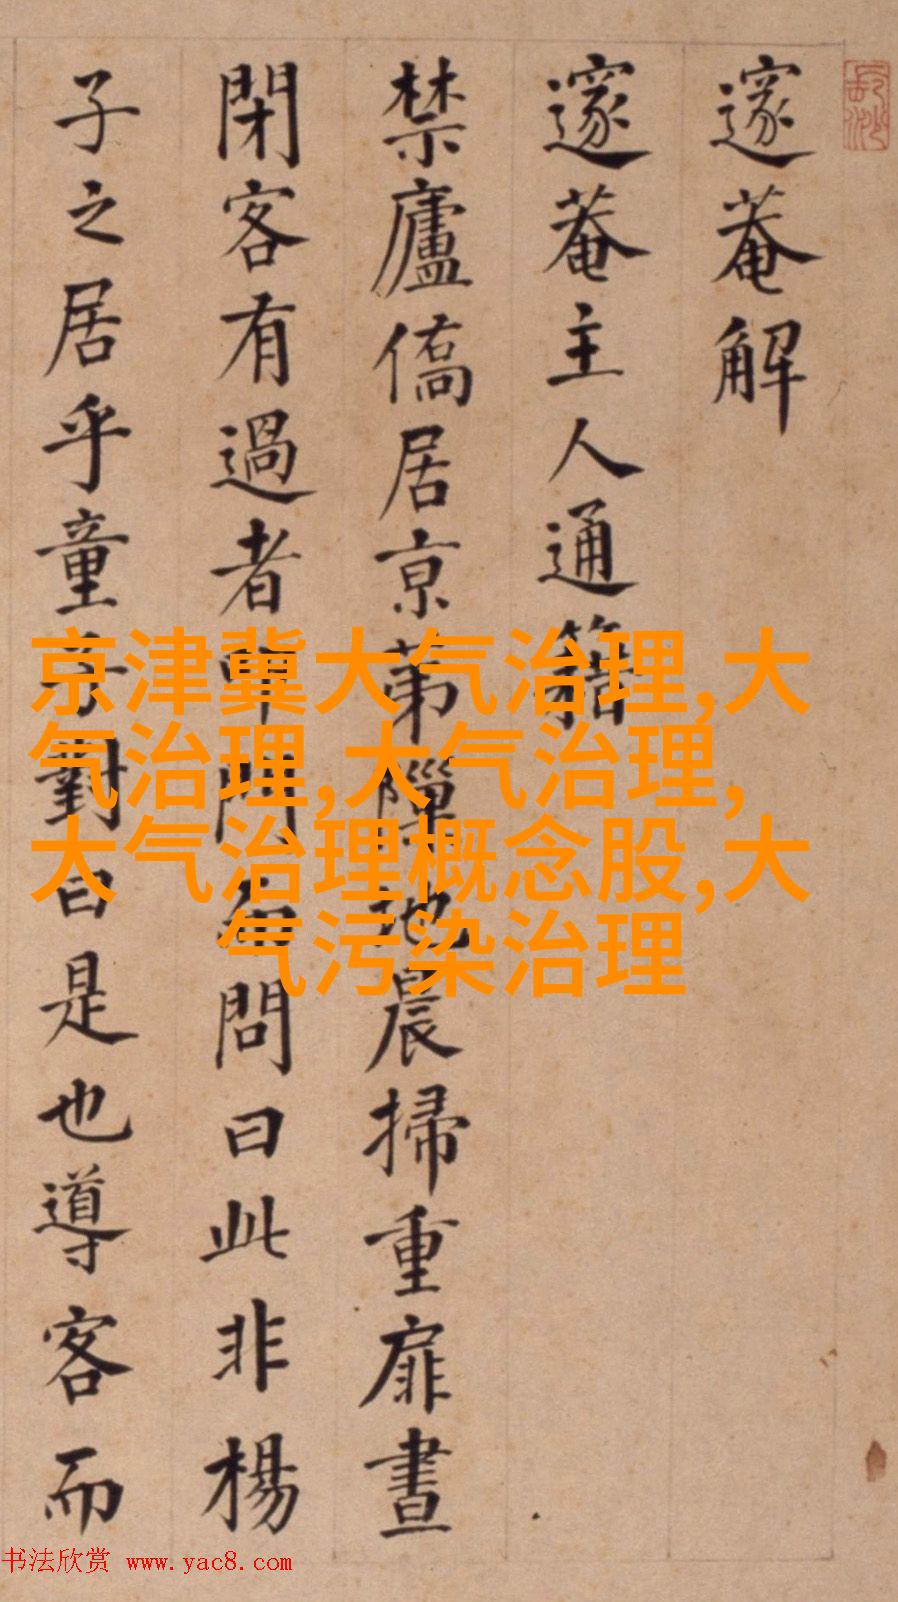 邃菴解
邃菴主人通籍
禁廬僑居京第地晨掃重扉晝
閉客有過者門問曰此非楊
子之居乎童子對曰是也導客而
京津冀大气治理,大
气治理,大气治理,
大气治理概念股,大
气污染治理
书法欣赏 www.yac8.com